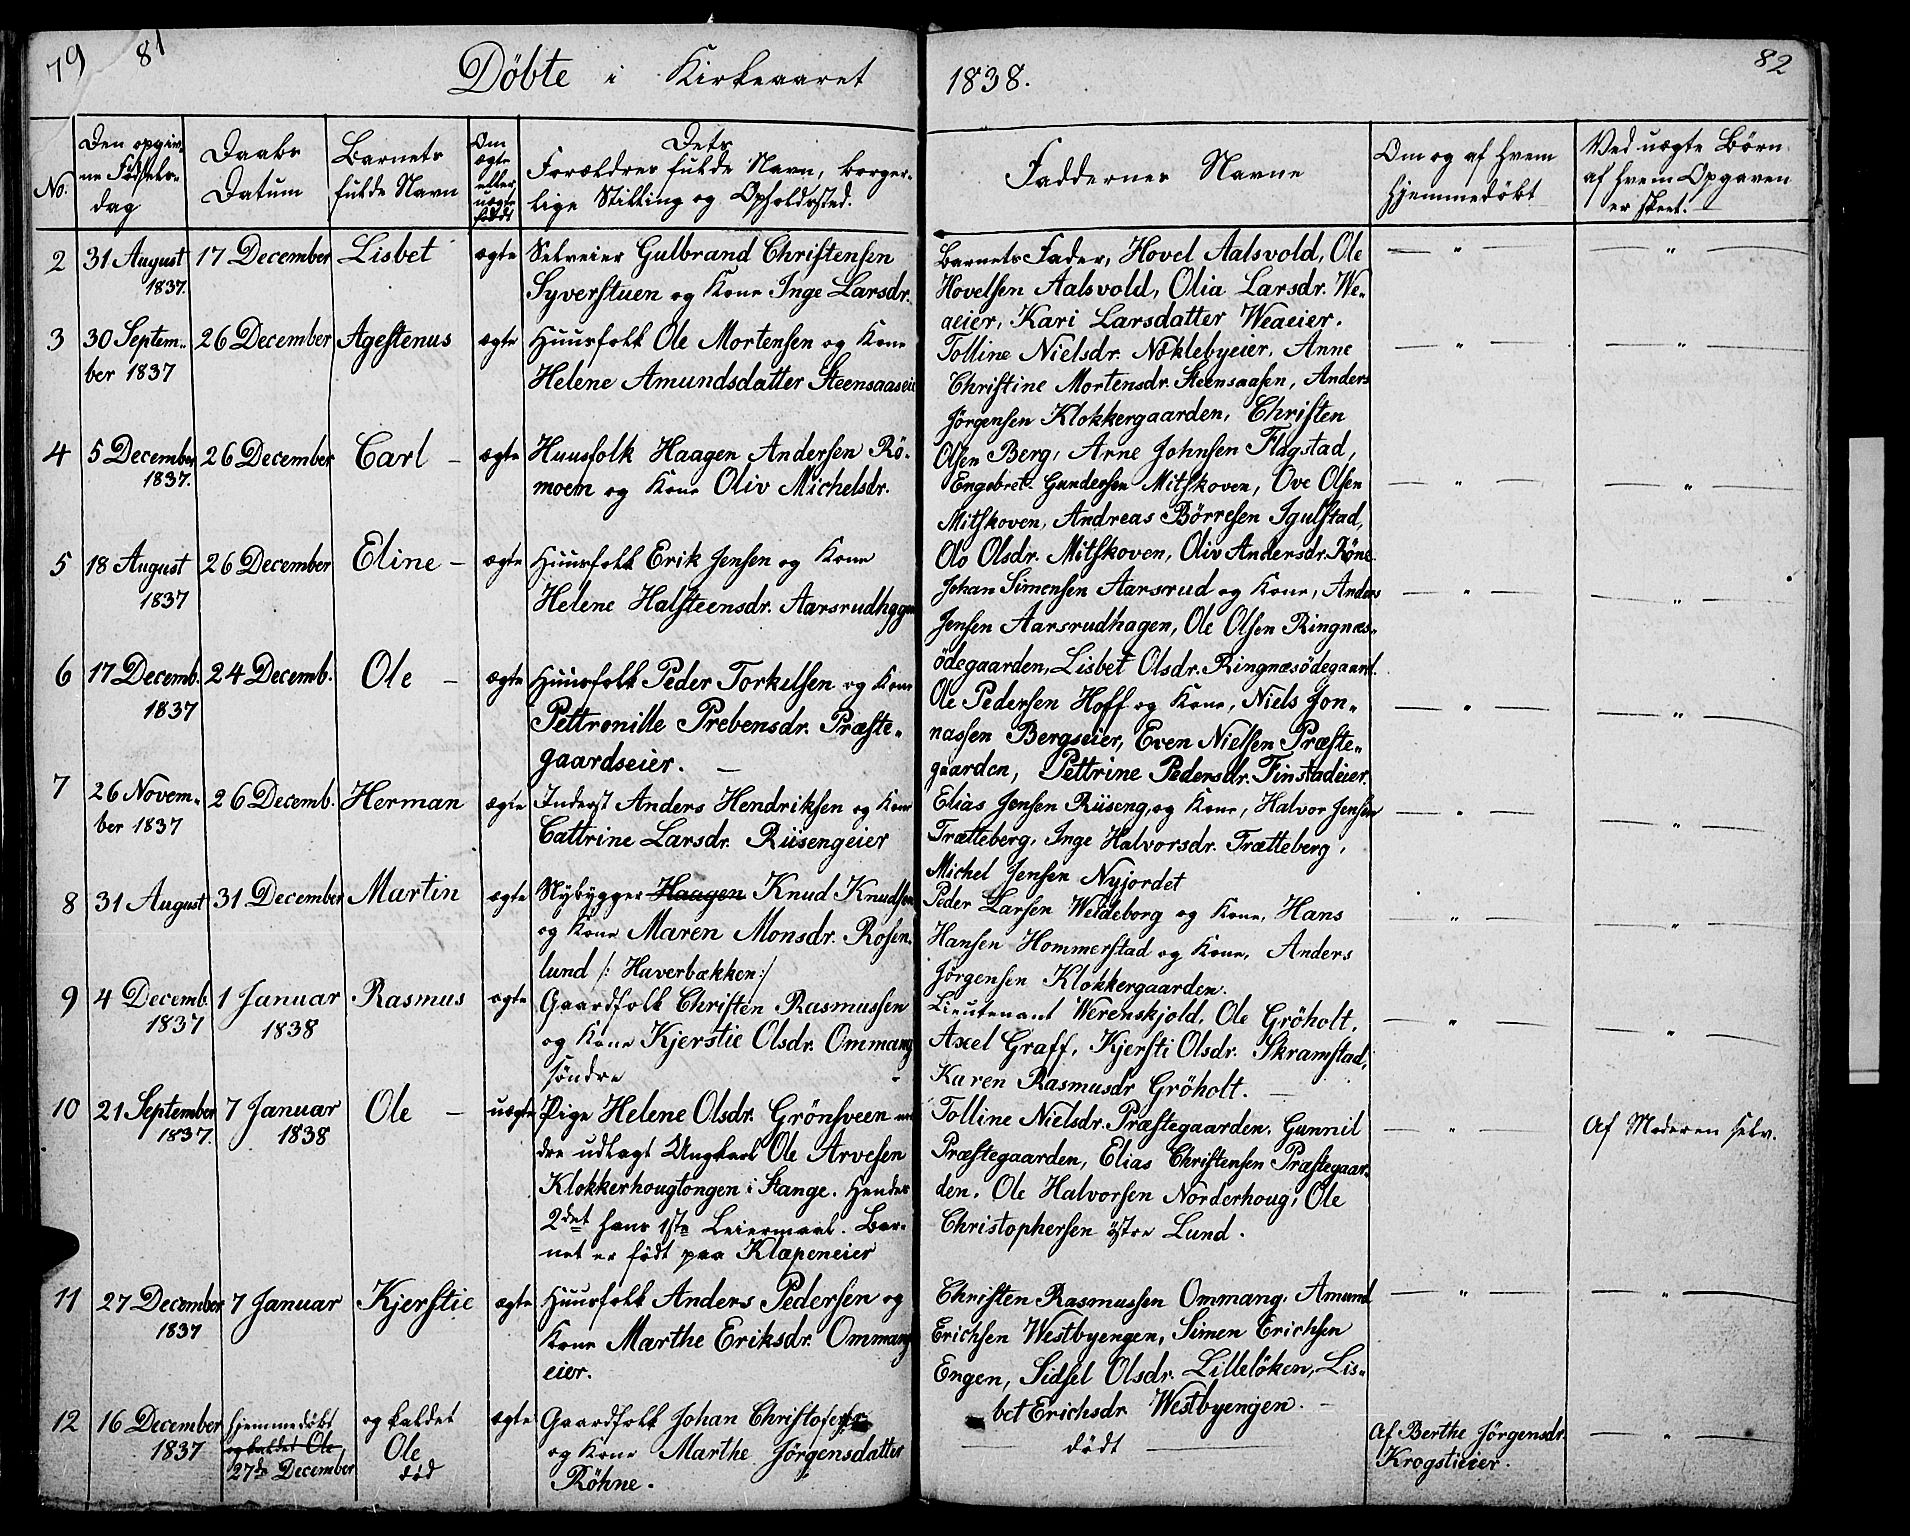 79 81
Döbte i Kirkeaaret 1838.
82
No.
Den opgiv-
ne Födsels-
dag
Daabs
Datum
Barnets
fulde Navn
Om
ægte
eller
uægte
födt
Dets
Forældres fulde Navn, borger-
lige Stilling og Opholdssted.
Faddernes Navne
Om og af hvem
hjemmedöbt
Ved uægte Börn
af hvem Opgaven
er skeet.
2 31 August 17 December Lisbet ægte Selveier Gulbrand Christensen
1837.
Syverstuen og Kone Inge Larsdr.
Barnets Fader, Hovel Aalsvold, Ole
Hovelsen Aalsvold, Olia Larsdr. We-
aeier, Kari Larsdatter Weaeier.
— " — — " —
3 30 Septem- 26 December Agestenus ægte Huusfolk Ole Mortensen og Kone
ber 1837
Helene Amundsdatter Steensaaseie
Tolline Nielsdr. Noklebyeier, Anne
Christine Mortensdr. Steensaasen, Anders
Jörgensen Klokkergaarden, Christen
Olsen Berg, Arne Johnsen Flagstad,
— " — — " —
4 5 December 26 December Carl — ægte Huusfolk Haagen Andersen Rö-
1837.
moem og Kone Oliv Michelsdr.
Engebret Gundersen Mitskoven, Ove Olsen
Mitskoven, Andreas Börresen Igulstad,
Olo Olsdr. Mitskoven, Oliv Andersdr. Röne
— " — — " —
5 18 August 26 December Eline — ægte Huusfolk Erik Jensen og Kone
1837
Helene Halsteensdr. Aarsrudhagen
Johan Simensen Aarsrud og Kone, Anders
Jensen Aarsrudhagen, Ole Olsen Ringnæs-
ödegaarden, Lisbet Olsdr. Ringnæsödegaard.
— " — — " —
6 17 Decemb. 24 Decemb. Ole — ægte Huusfolk Peder Torkelsen og Kone
1837
Pettronille Prebensdr. Præste-
gaardseier. —
Ole Pedersen Hoff og Kone, Niels Jon-
nassen Bergseier, Even Nielsen Præste-
gaarden, Pettrine Pedersdr. Finstadeier.
— " — — " —
7 26 Novem- 26 Decemb. Herman ægte Inderst Anders Hendriksen og Kone
ber 1837
Cattrine Larsdr. Riisengeier
Elias Jensen Riiseng, og Kone, Halvor Jensen
Trætteberg, Inge Halvorsdr. Trætteberg,
Michel Jensen Nyjordet
— " — — " —
8 31 August 31 December Martin ægte Nybygger Haagen Knud Knudsen
og Kone Maren Monsdr. Rosen-
lund /: Haverbækken :/
Peder Larsen Weideborg og Kone, Hans
Hansen Hommerstad og Kone, Anders
Jörgensen Klokkergaarden.
— " — — " —
9 4 Decemb. 1 Januar Rasmus ægte Gaardfolk Christen Rasmussen
1837 1838
og Kone Kjerstie Olsdr. Ommang
söndre
Lieutenant Werenskjold, Ole Gröholt,
Axel Graff, Kjersti Olsdr. Skramstad,
Karen Rasmusdr Gröholt. —
— " — — " —
10 21 September 7 Januar Ole — uægte Pige Helene Olsdr. Grönsveen
1837. 1838
udlagt Ungkarl Ole Arvesen
Klokkerhougtongen i Stange. Hendes
2det hans 1ste Leiermaal. Bar-
net er födt paa Klæpeneier
Tolline Nielsdr. Præstegaarden, Gunnil
Præstegaarden, Elias Christensen Præstegaar-
den, Ole Halvorsen Norderhoug, Ole
Christophersen östre Lund.
— " — Af Moderen selv.
11 27 December 7 Januar Kjerstie ægte Huusfolk Anders Pedersen og
1837
Kone Marthe Eriksdr. Ommang
eier.
Christen Rasmussen Ommang, Amund
Erichsen Westbyengen, Simen Erichsen
Engen, Sidsel Olsdr. Lillelöken, Lis-
bet Erichsdr Westbyengen. —
— " — — " —
12 16 December hjemmedöbt og kaldet ægte Gaardfolk Johan Christofers
1837 og kaldet Ole, Ole og Kone Marthe Jörgensdatter
27de December död Röhne.
— dödt —
Af Berthe Jörgensdr.
Krogstieier.
— " —